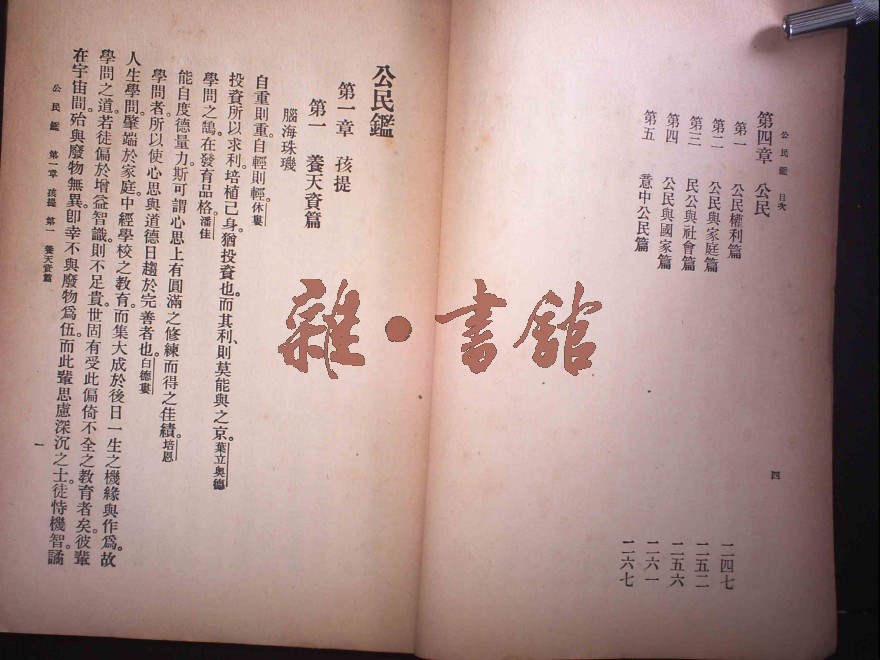 公民鑑 目次
第四章 公民
第一 公民權利篇 二四七
第二 公民與家庭篇 二五二
第三 民公與社會篇 二五六
第四 公民與國家篇 二六一
第五 意中公民篇 二六七
四
公民鑑
第一章 孩提
第一 養天資篇
腦海珠璣
自重則重。自輕則輕。休婁
投資所以求利。培植己身。猶投資也。而其利、則莫能與之京。葉立奧德
學問之鵠。在發育品格。潘佳
能自度德量力。斯可謂心思上有圓滿之修練而得之佳績。培恩
學問者。所以使心思與道德日趨於完善者也。白德婁
人生學問。肇端於家庭。中經學校之教育。而集大成於後日一生之機緣與作爲。故
學問之道。若徒偏於增益智識。則不足貴。世固有受此偏倚不全之教育者矣。彼輩
在宇宙間。始與廢物無異。卽幸不與廢物爲伍。而此輩思慮深沉之士。徒恃機智。譎
公民鑑 第一章 孩提 第一 養天資篇
一
雜·書館